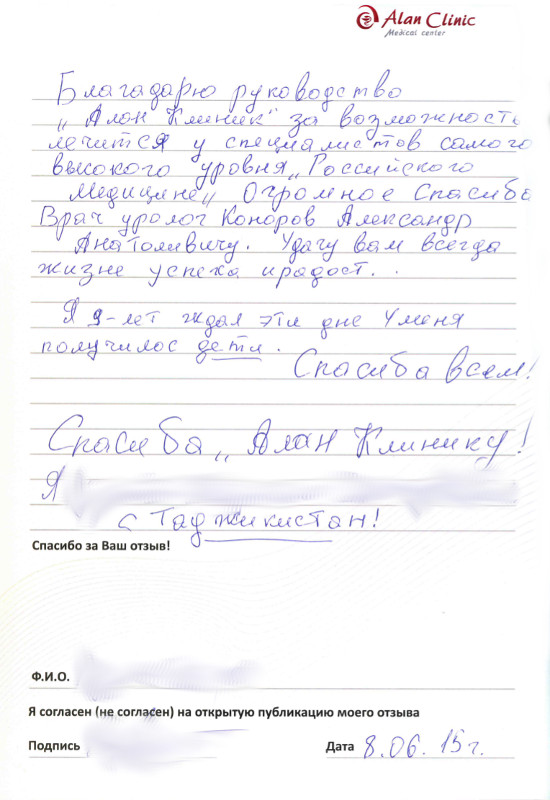 Alan Clinic
Medical center
Благадарю руководство
„Алан Клиник" за возможность
лечится у специалистов самого
высокого уровня „Российского
Медицине„ Огромное Спасиба
Врач уролог Коноров Александр
Анатоливичу. Удачу вам всегда
жизне успеха и радост..
Я 9-лет ждал эти дне Уменя
получилос дети.
Спасиба всем!
Спасиба „Алан Клинику!
Я
с Таджикистан!
Спасибо за Ваш отзыв!
Ф.И.О.
Я согласен (не согласен) на открытую публикацию моего отзыва
Подпись
Дата 8.06.15г.